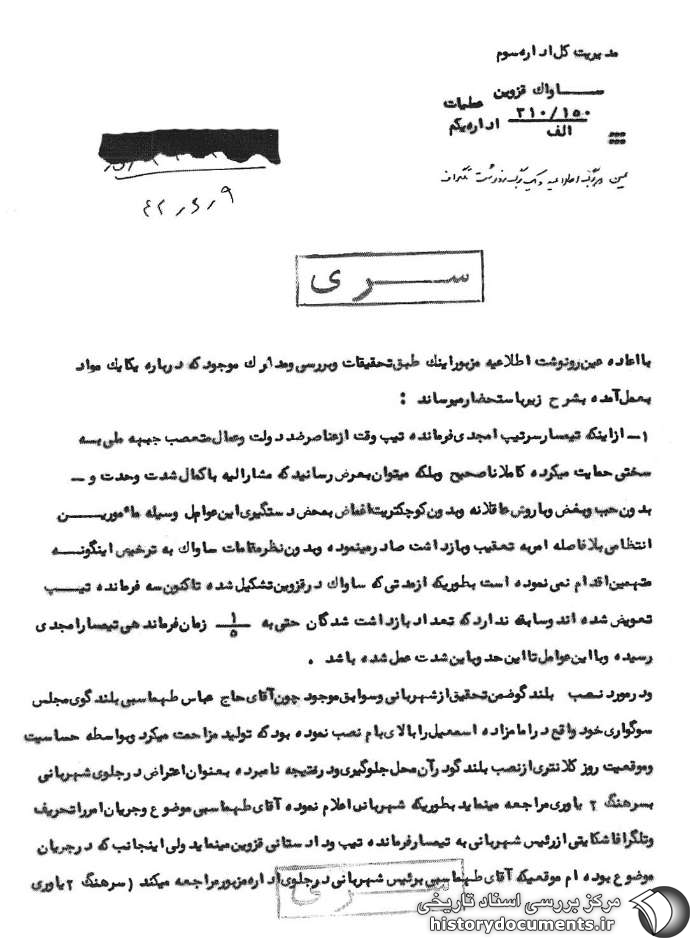 مدیریت کل اداره سوم
ساواك قزوین
عملیات
۳۱۰/۱۵۰
الف
اداره یکم
۴۲٫۶٫۹
سری
با اعاده عین رونوشت اطلاعیه مزبور اینك طبق تحقیقات و بررسی و مدارك موجود که درباره یکایك مواد
بعمل آمده بشرح زیر باستحضار میرساند :
۱ـ از اینکه تیمسار سرتیپ امجدی فرمانده تیپ وقت از عناصر ضد دولت و عمال متعصب جبهه ملی به
سختی حمایت میکرده کاملا ناصحیح و بلکه میتوان بعرض رسانید که مشارالیه با کمال شدت و حدت و ـ
بدون حب و بغض و با روش عاقلانه و بدون کوچکتریت اغماض بمحض دستگیری این عوامل وسیله مأمورین
انتظامی بلافاصله امر به تعقیب و بازداشت صادر مینموده و بدون نظر مقامات ساواك به ترخیص اینگونه
متهمین اقدام نمی نموده است بطوریکه از مدتی که ساواك در قزوین تشکیل شده تاکنون سه فرمانده تیپ
تعویض شده اند و سابقه ندارد که تعداد بازداشت شدگان حتی به ۱/۵ زمان فرماندهی تیمسار امجدی
رسیده و با این عوامل تا این حد و باین شدت عمل شده باشد .
و در مورد نصب بلندگو ضمن تحقیق از شهربانی و سوابق موجود چون آقای حاج عباس طهماسبی بلندگوی مجلس
سوگواری خود واقع در امامزاده اسمعیل را بالای بام نصب نموده بود که تولید مزاحمت میکرد و بواسطه حساسیت
و موقعیت روز کلانتری از نصب بلندگو در آن محل جلوگیری و در نتیجه نامبرده بعنوان اعتراض در جلوی شهربانی
بسرهنگ ۲ یاوری مراجعه مینماید بطوریکه شهربانی اعلام نموده آقای طهماسبی موضوع و جریان امر را تحریف
و تلگرافا شکایتی از رئیس شهربانی به تیمسار فرمانده تیپ و دادستانی قزوین مینماید ولی اینجانب که در جریان
موضوع بوده ام موقعیکه آقای طهماسبی برئیس شهربانی در جلوی اداره مزبور مراجعه میکند ( سرهنگ ۲ یاوری
سری
مرکز بررسی اسناد تاریخی
historydocuments.ir